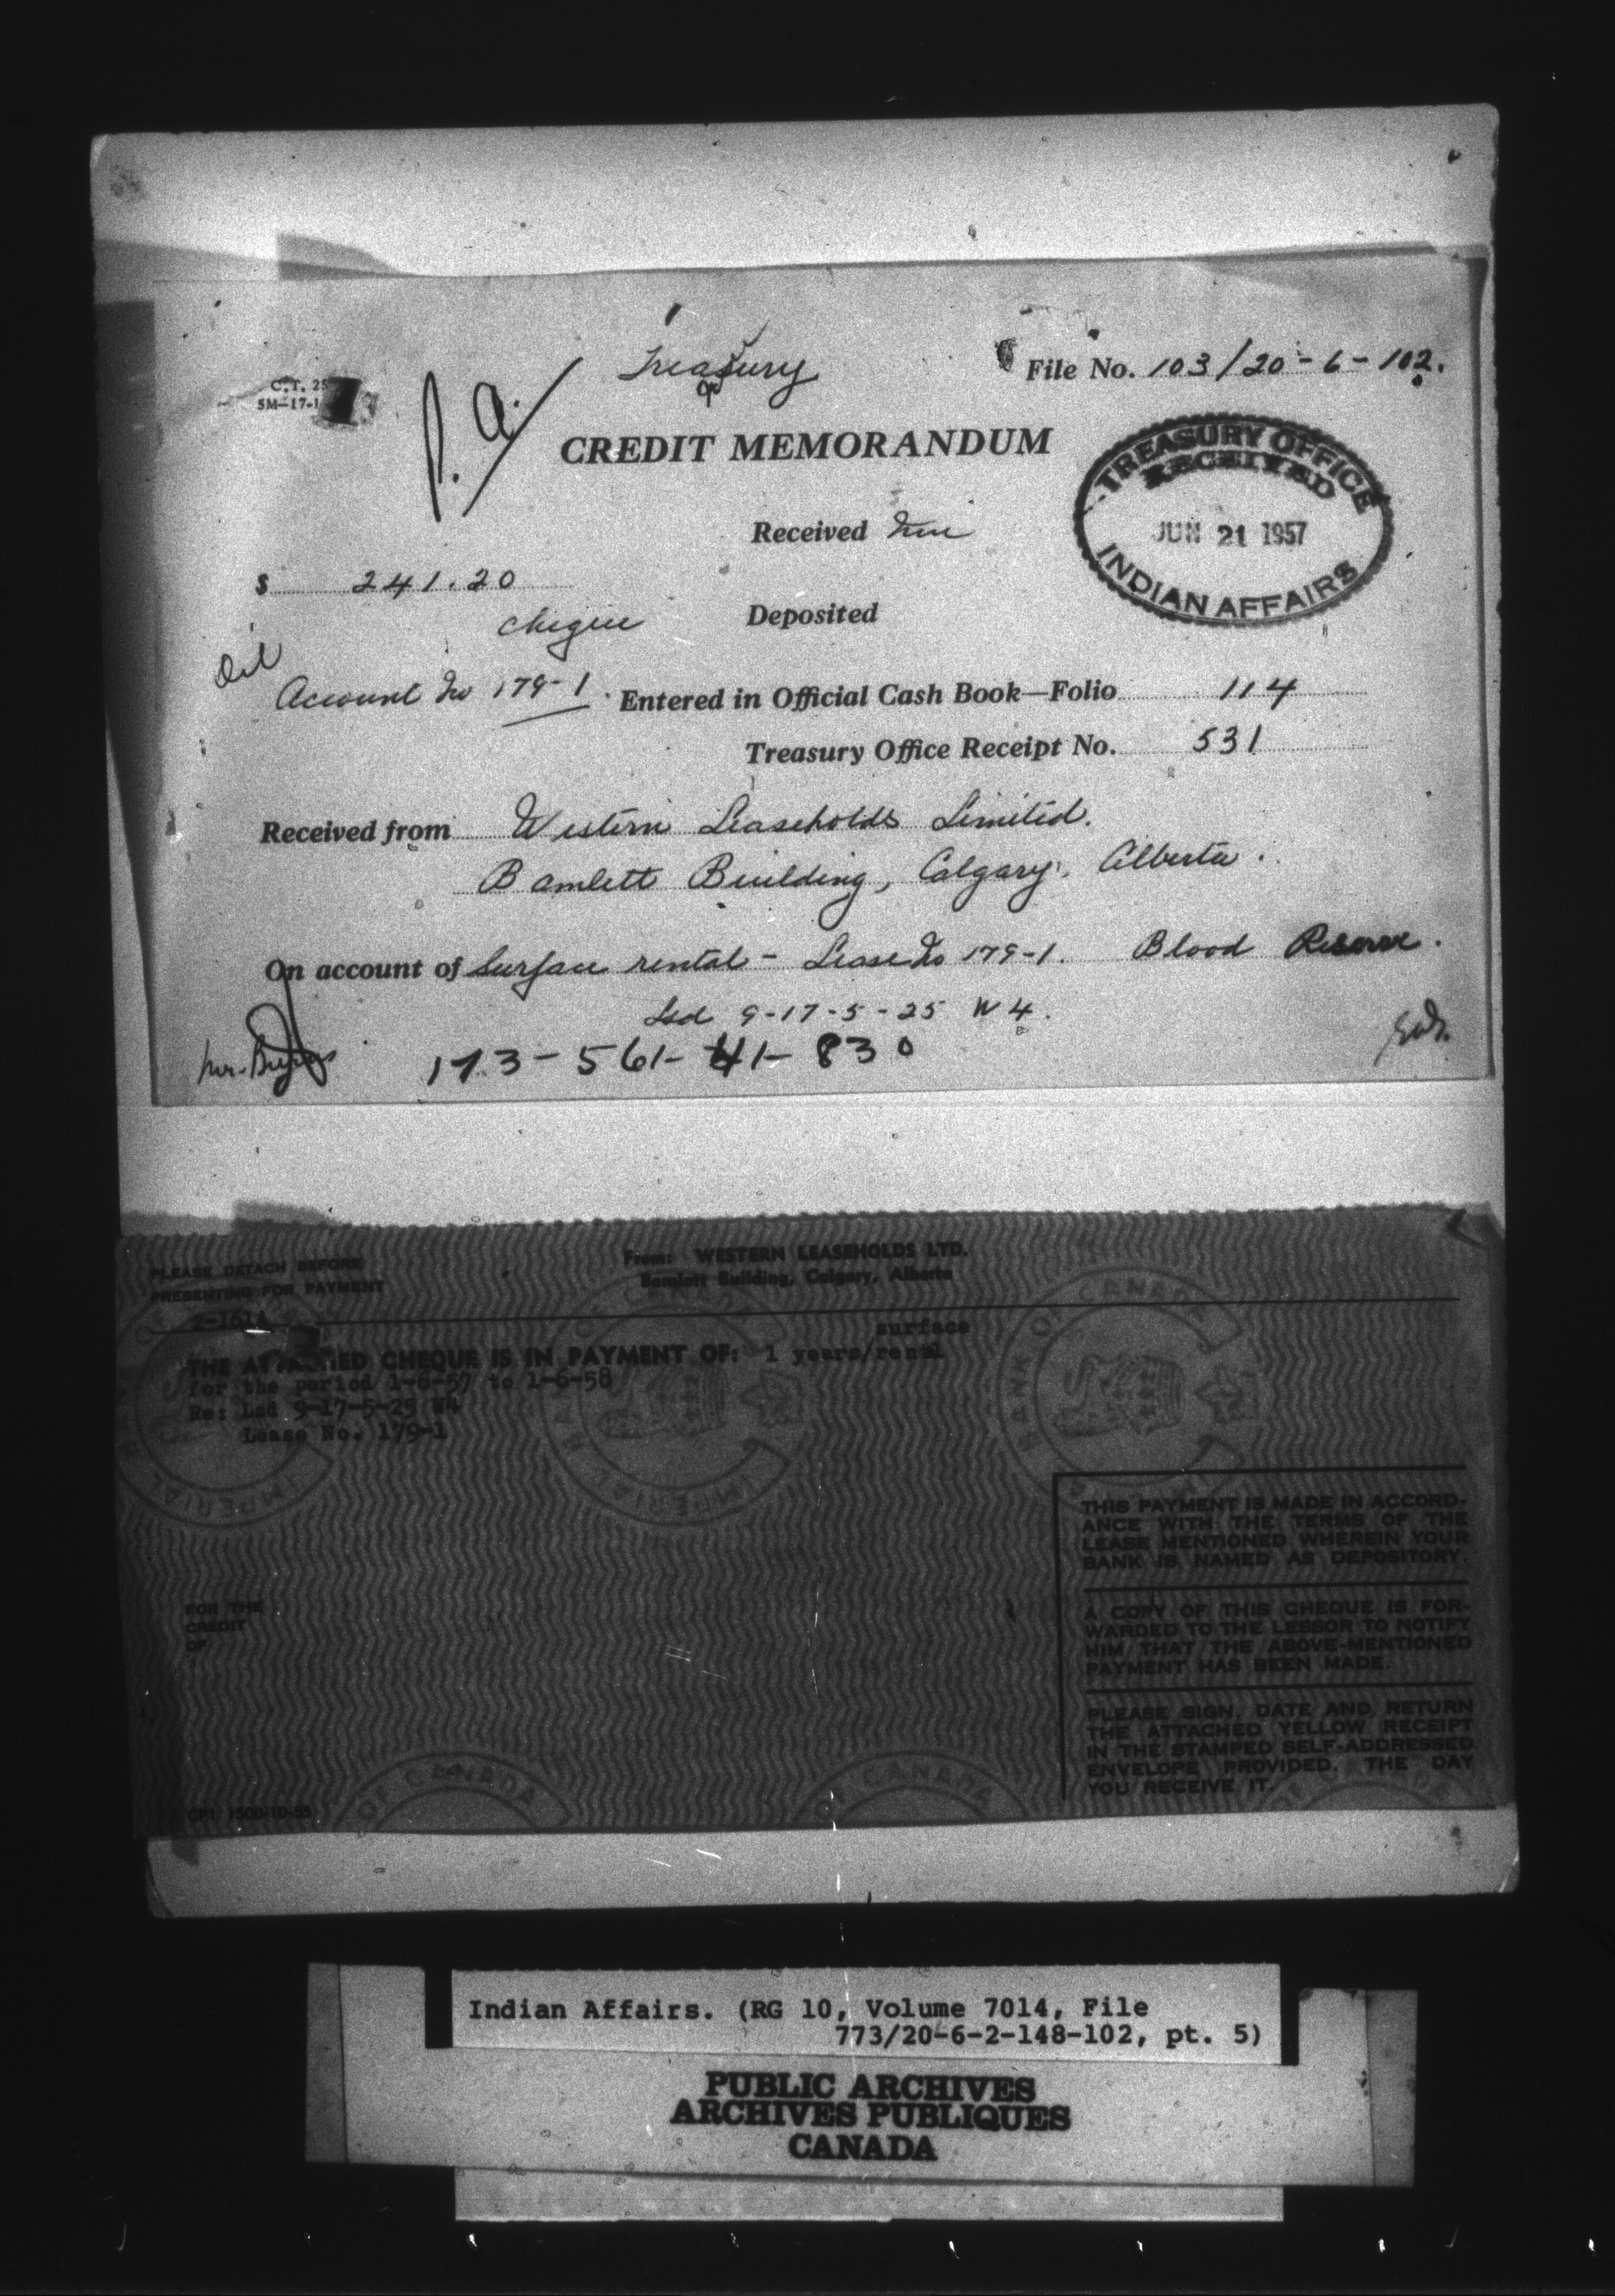 Treasury
File No. 103/20-6-102.
C.T. 25
5M-17-1
P.A.
CREDIT MEMORANDUM
TREASURY OFFICE
RECEIVED
JUN 21 1957
INDIAN AFFAIRS
Received
$ 241.20
cheque
Deposited
Oil
Account No 179-1. Entered in Official Cash Book—Folio 114
Treasury Office Receipt No. 531
Received from Western Leaseholds Limited.
Bamlett Building, Calgary, Alberta.
On account of Surface rental - Lease No 179-1. Blood Reserve.
Lsd 9-17-5-25 W4.
173-561-41-830
PLEASE DETACH BEFORE
PRESENTING FOR PAYMENT
From: WESTERN LEASEHOLDS LTD.
Bamlett Building, Calgary, Alberta
2-161A
surface
THE ATTACHED CHEQUE IS IN PAYMENT OF: 1 years/rental
for the period 1-6-57 to 1-6-58
Re: Lsd 9-17-5-25 W4
Lease No. 179-1
THIS PAYMENT IS MADE IN ACCORD-
ANCE WITH THE TERMS OF THE
LEASE MENTIONED WHEREIN YOUR
BANK IS NAMED AS DEPOSITORY.
FOR THE
CREDIT
OF
A COPY OF THIS CHEQUE IS FOR-
WARDED TO THE LESSOR TO NOTIFY
HIM THAT THE ABOVE-MENTIONED
PAYMENT HAS BEEN MADE.
PLEASE SIGN, DATE AND RETURN
THE ATTACHED YELLOW RECEIPT
IN THE STAMPED SELF-ADDRESSED
ENVELOPE PROVIDED, THE DAY
YOU RECEIVE IT.
IMPERIAL BANK OF CANADA
Indian Affairs. (RG 10, Volume 7014, File
773/20-6-2-148-102, pt. 5)
PUBLIC ARCHIVES
ARCHIVES PUBLIQUES
CANADA